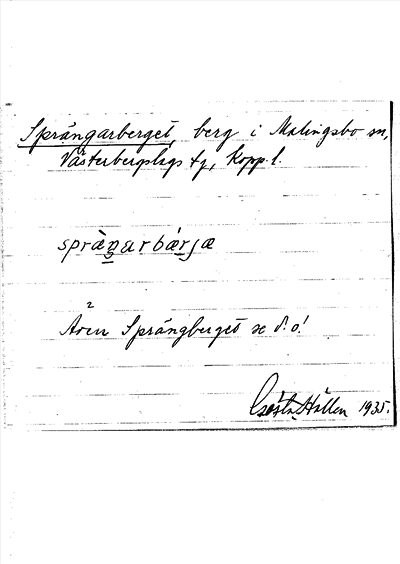 Sprängarberget, berg i Malingsbo sn,
Västerbergslags tg, Kopp. l.
spràŋarbǽrjæ
2
Även Sprängberget se d. o!
Gösta Hållen 1935.